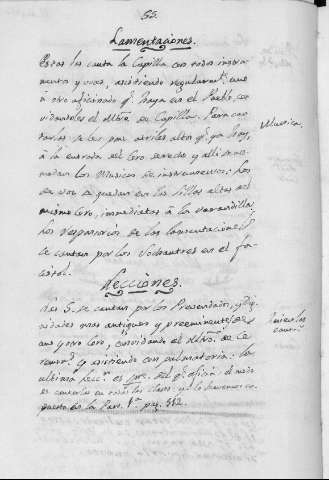 55.
Lamentaciones.
Estas las canta la Capilla con todos instru-
mentos y voces, asistiendo regularm.te uno
à otro aficionado q.e haya en el Pueblo, con
vidandoles el Mtro de Capilla. Para can
tarlas se les pone atriles altos q.e ya hay,
à la entrada del Coro derecho y alli se aco-
modan los Musicos de instrumentos: Los
de voz se quedan en las sillas altas del
mismo Coro, inmediatos à las varandillas
Los responsorios de las lamentaciones
se cantan por los Sochantres en el fa-
cistol.
Musica.
Lecciones.
Las 5. se cantan por los Presvendados, y Dig
nidades mas antiguos y preeminentes, de
uno y otro Coro, convidando el Mtro. de Ce
remon.s y asistiendo con palmatoria: la
ultima Lecc.n es pre. del q.e oficia. el modo
de cantarlas en
puesto en la Part. 1.a pag. 352.